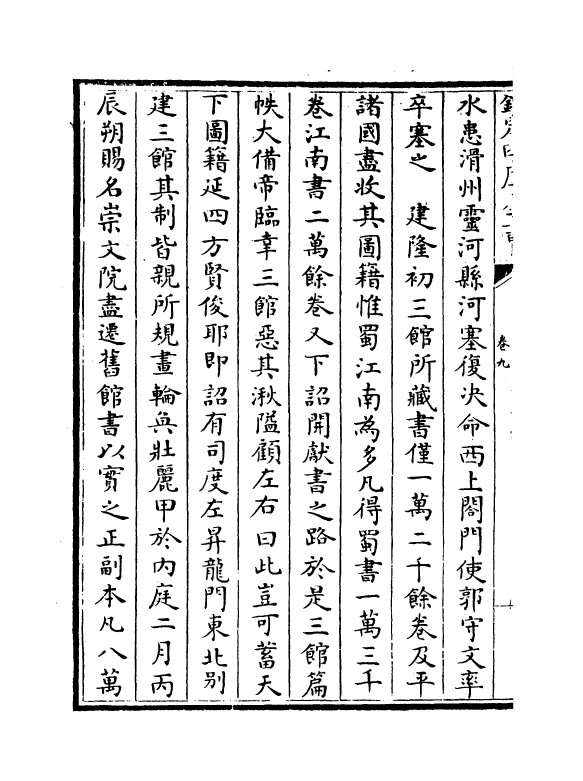 卷九
水患滑州靈河縣河塞復決命西上閤門使郭守文率
卒塞之　建隆初三館所藏書僅一萬二千餘卷及平
諸國盡收其圖籍惟蜀江南為多凡得蜀書一萬三千
卷江南書二萬餘卷又下詔開獻書之路於是三館篇
帙大備帝臨幸三館惡其湫隘顧左右曰此豈可蓄天
下圖籍延四方賢俊耶即詔有司度左昇龍門東北别
建三館其制皆親所規畫輪奐壯麗甲於內庭二月丙
辰朔賜名崇文院盡遷舊館書以實之正副本凡八萬